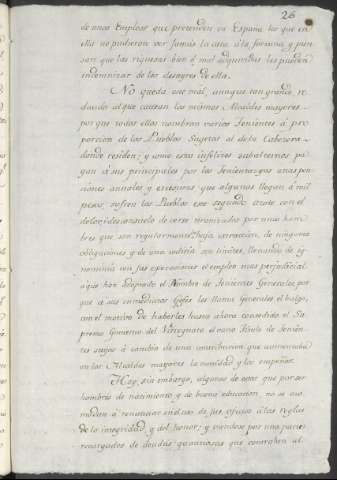 26
de unos Empleos que pretenden en España los que en
ella no pudieron ver jamás la cara á la fortuna, y pien
san que las riquezas bien ó mal adquiridas les pueden
indemnizar de los desayres de ella.
No queda este mal, aunque tan grande re
ducido al que causan los mismos Alcaldes mayores
porque todos ellos nombran varios Tenientes á pro
porcion de los Pueblos sugetos al de la Cabecera
donde residen; y como estos infelices subalternos pa
gan á sus principales por las Tenientazgos unas pen
siones anuales y exesivas que algunas llegan á mil
pesos, sufren los Pueblos este segundo azote con el
doloroso desconsuelo de verse tiranizados por unos hom
bres que son regularmente de baja extraccion, de ningunas
obligaciones y de una codicia sin limites, llenando de ig
nominia con sus operaciones el empleo mas perjudicial
que han adoptado el Nombre de Tenientes Generales por
que á sus inmediatos Gefes les llama Generales el bulgo,
con el motivo de haberles hasta ahora concedido el Su
premo Gobierno del Virreynato el vano titulo de Tenien
tes suyos á cambio de una contribucion que aumentaba
en los Alcaldes mayores la vanidad y los empeños.
Hay, sin embargo, algunos de estos que por ser
hombres de nacimiento y de buena educacion, no se aco
modan á renunciar en el uso de sus oficios á las reglas
de la integridad y del honor; y viendose por una parte
recargados de deudas quantiosas que contrahen al